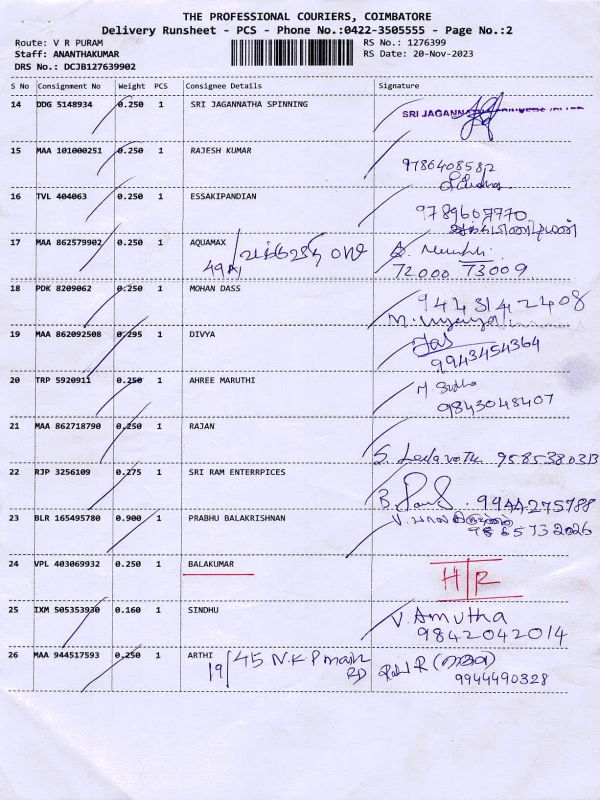 THE PROFESSIONAL COURIERS, COIMBATORE
Delivery Runsheet - PCS - Phone No.:0422-3505555 - Page No.:2
Route: V R PURAM
Staff: ANANTHAKUMAR
DRS No.: DCJB127639902
RS No.: 1276399
RS Date: 20-Nov-2023
S No Consignment No Weight PCS Consignee Details Signature
14 DDG 5148934 0.250 1 SRI JAGANNATHA SPINNING SRI JAGANNATHA
15 MAA 101000251 0.250 1 RAJESH KUMAR
9786408582
16 TVL 404063 0.250 1 ESSAKIPANDIAN
9789607770
17 MAA 862579902 0.250 1 AQUAMAX
49A
72000 73009
18 PDK 8209062 0.250 1 MOHAN DASS
9443142408
19 MAA 862092508 0.295 1 DIVYA
9943454364
20 TRP 5920911 0.250 1 AHREE MARUTHI
9843048407
21 MAA 862718790 0.250 1 RAJAN
9585380313
22 RJP 3256109 0.275 1 SRI RAM ENTERRPICES
9944275788
23 BLR 165495780 0.900 1 PRABHU BALAKRISHNAN
9865732026
24 VPL 403069932 0.250 1 BALAKUMAR H/R
25 IXM 505353930 0.160 1 SINDHU
V. Amutha
9842042014
26 MAA 944517593 0.250 1 ARTHI
19/45 N.K.P main RD
9944490328